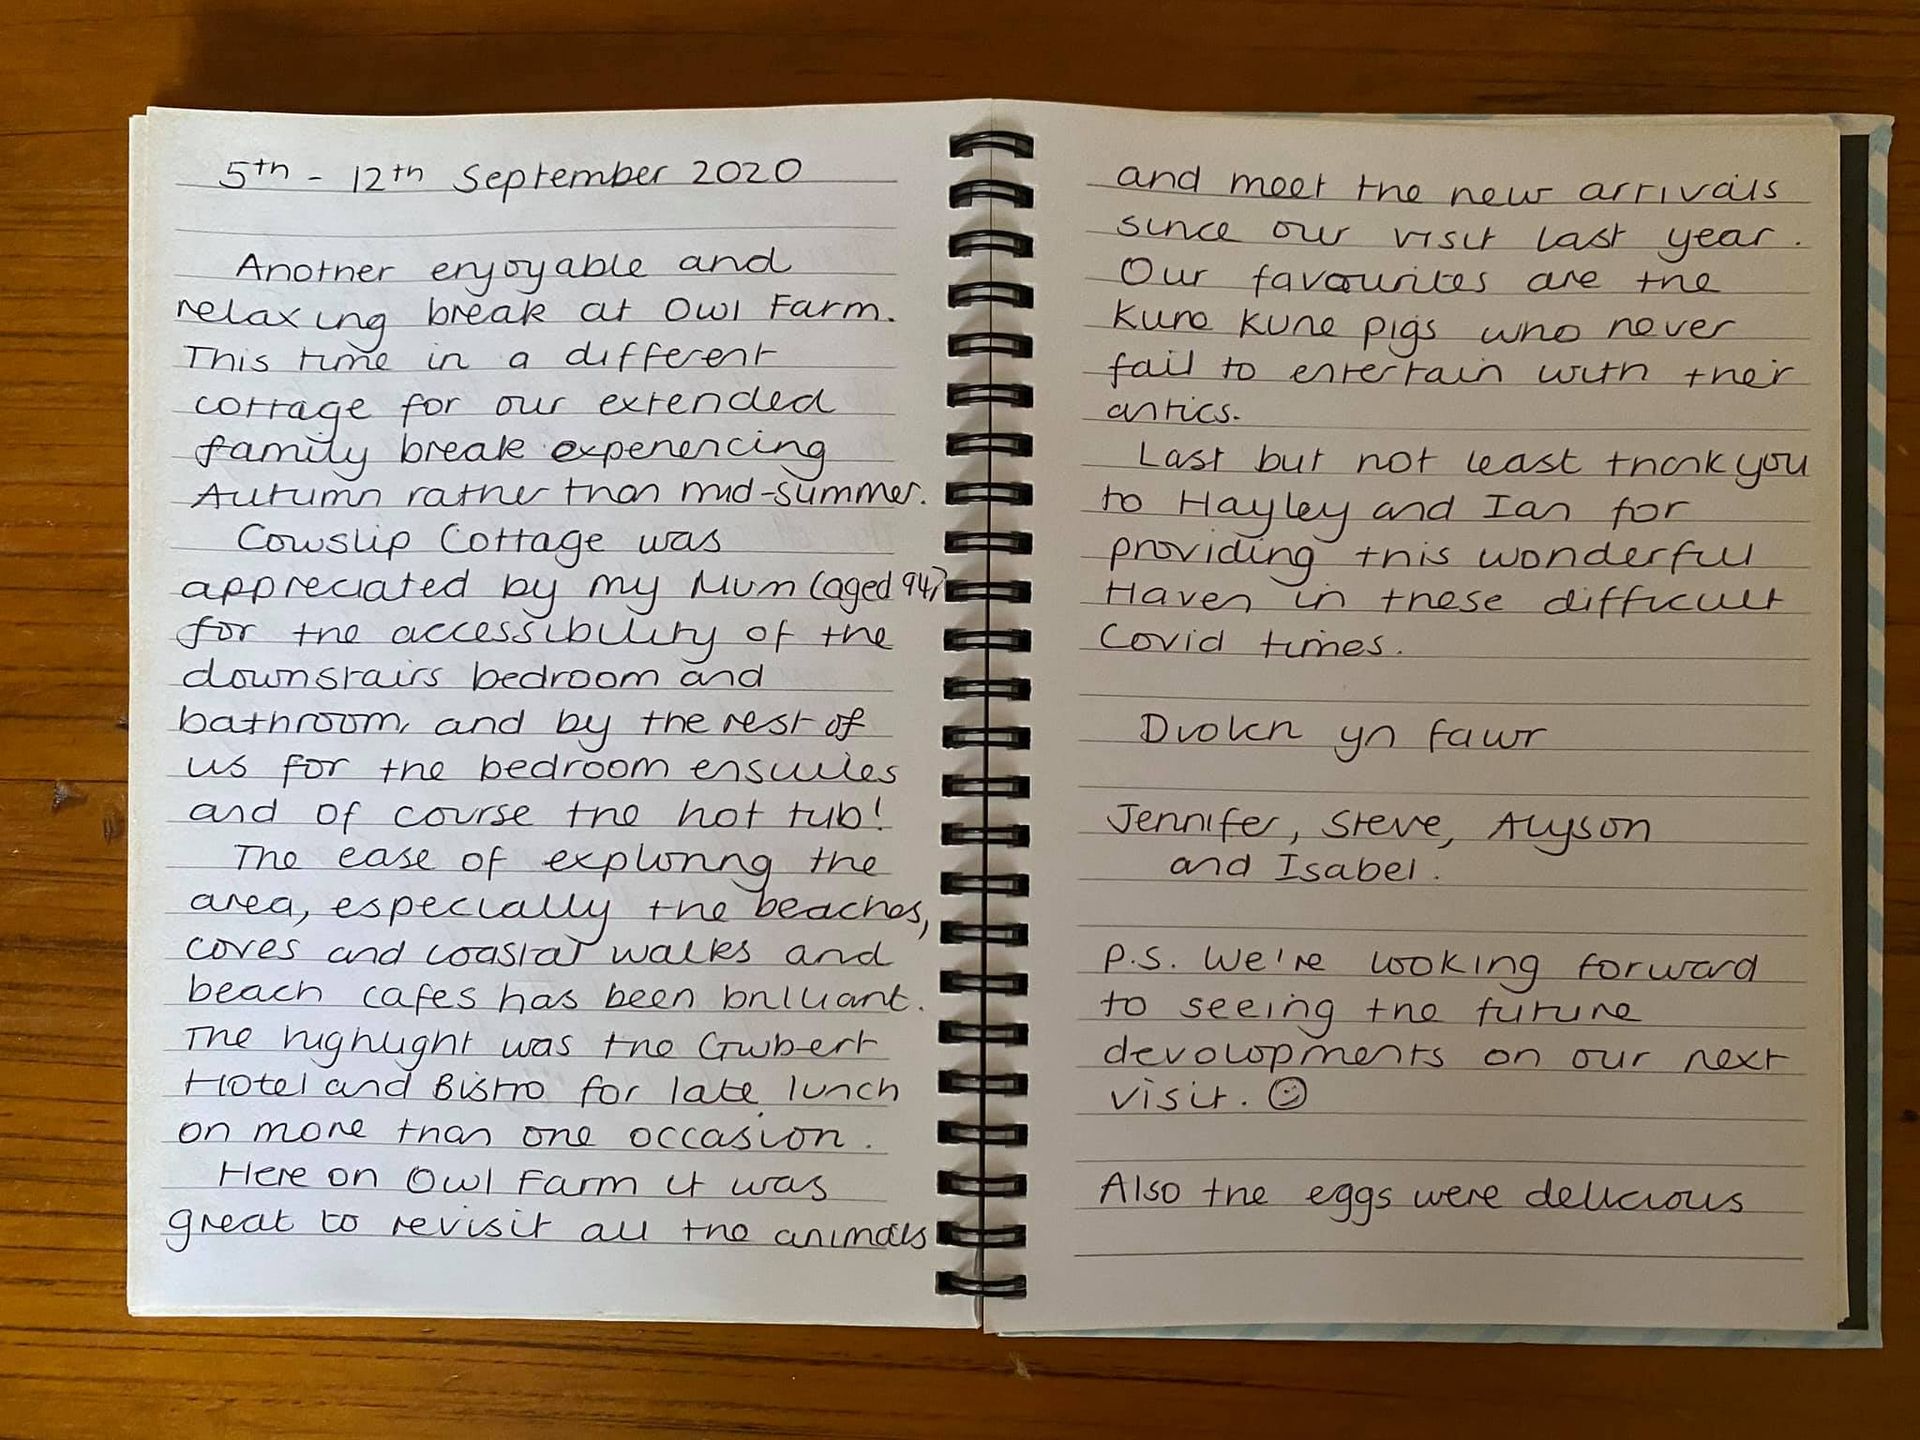 5th - 12th September 2020
Another enjoyable and
relaxing break at Owl Farm.
This time in a different
cottage for our extended
family break experiencing
Autumn rather than mid-summer.
Cowslip Cottage was
appreciated by my Mum (aged 94)
for the accessibility of the
downstairs bedroom and
bathroom, and by the rest of
us for the bedroom ensuites
and of course the hot tub!
The ease of exploring the
area, especially the beaches,
coves and coastal walks and
beach cafes has been brilliant.
The highlight was the Gwbert
Hotel and Bistro for late lunch
on more than one occasion.
Here on Owl Farm it was
great to revisit all the animals
and meet the new arrivals
since our visit last year.
Our favourites are the
Kune Kune pigs who never
fail to entertain with their
antics.
Last but not least thank you
to Hayley and Ian for
providing this wonderful
Haven in these difficult
Covid times.
Diolch yn fawr
Jennifer, Steve, Alyson
and Isabel.
P.S. We're looking forward
to seeing the future
developments on our next
visit. ☺
Also the eggs were delicious